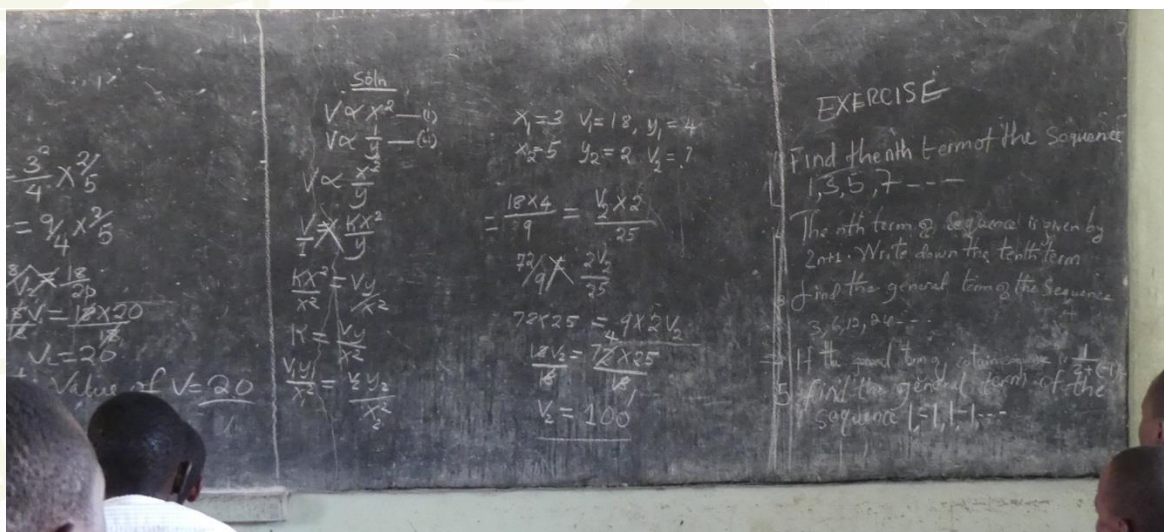 = 3²/4 × 2/5
= 9/4 × 2/5
18/V₂ = 18/20
18V₂ = 18×20
V₂ = 20
Value of V = 20
Soln
V ∝ x² —(i)
V ∝ 1/y —(ii)
V ∝ x²/y
V/1 = Kx²/y
Kx²/x² = Vy/x²
K = Vy/x²
V₁y₁/x₁² = V₂y₂/x₂²
x₁=3 V₁=18, y₁=4
x₂=5 y₂=2 V₂=?
= 18×4/9 = V₂×2/25
72/9 = 2V₂/25
72×25 = 9×2V₂
18V₂/18 = 72×25/18
V₂ = 100
EXERCISE
1 Find the nth term of the Sequence
1,3,5,7----
The nth term of sequence is given by
2n+1. Write down the tenth term
find the general term of the Sequence
3,6,12,24----
If the
5 find the general term of the
sequence 1,-1,1,-1,---